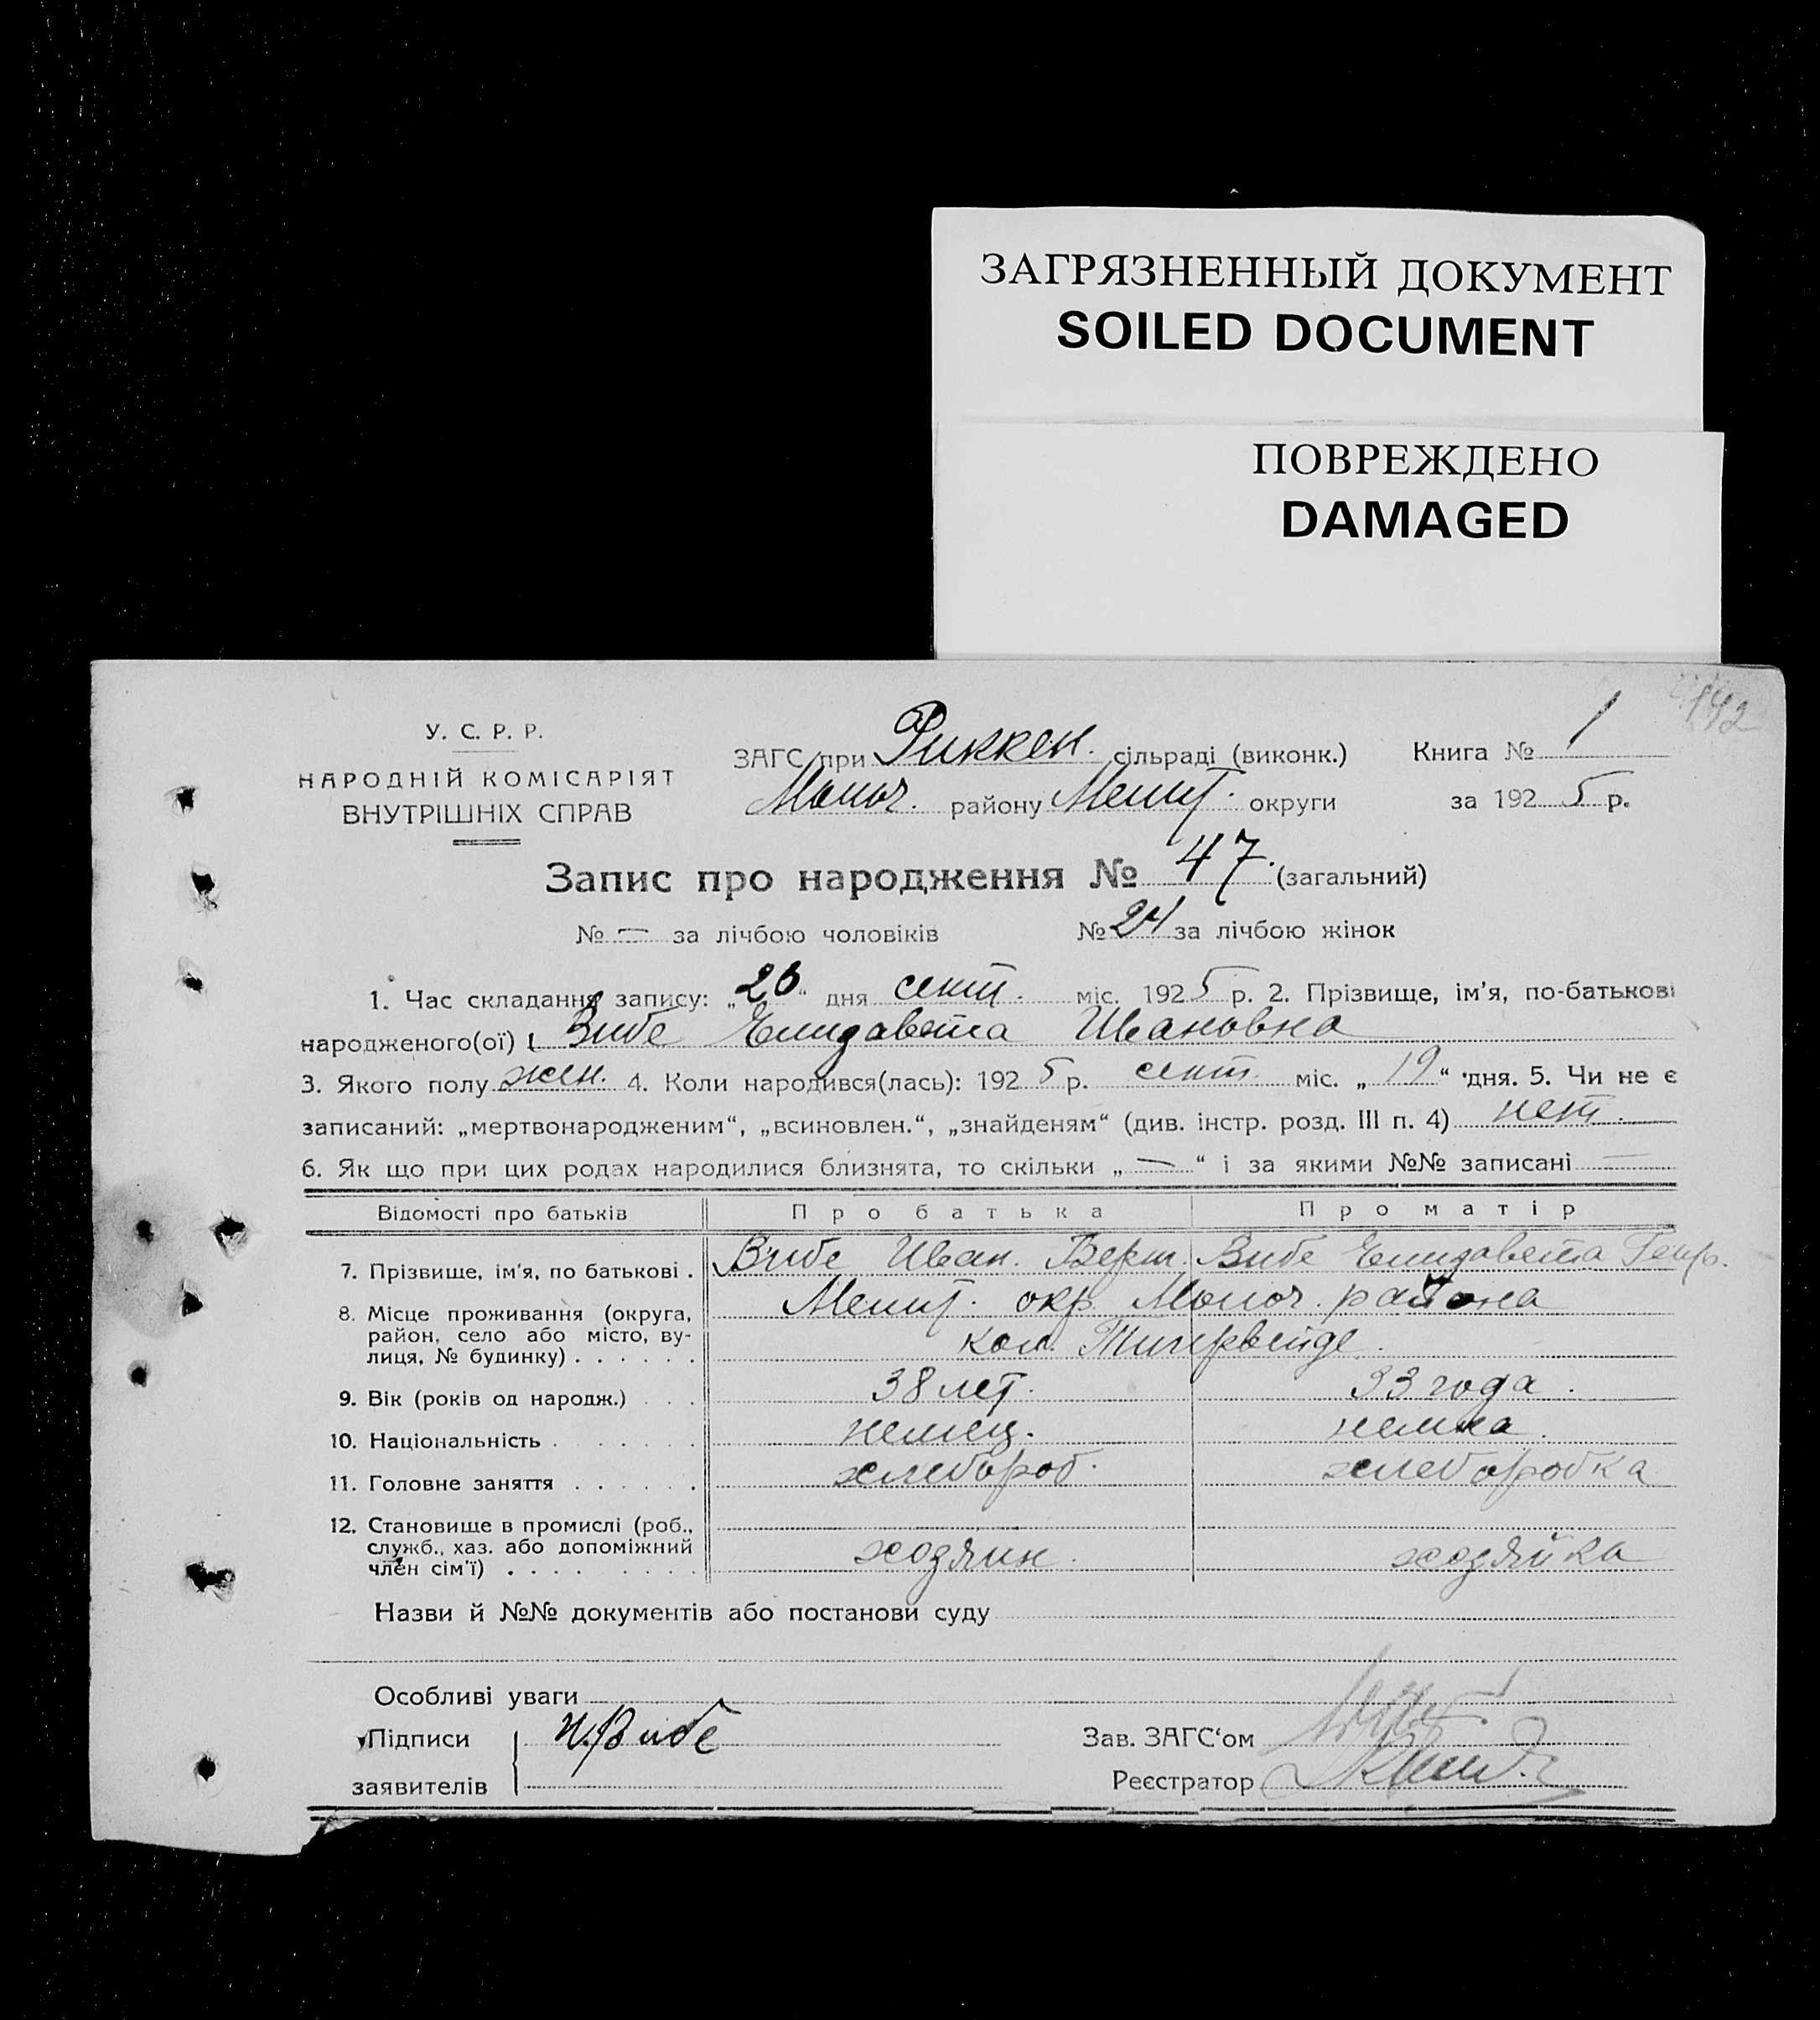 ЗАГРЯЗНЕННЫЙ ДОКУМЕНТ
SOILED DOCUMENT
ПОВРЕЖДЕНО
DAMAGED
142
У. С. Р. Р.
НАРОДНІЙ КОМІСАРІЯТ
ВНУТРІШНІХ СПРАВ
ЗАГС при Риккен. сільраді (виконк.) Книга № 1
Молоч. району Мелит. округи за 1925 р.
Запис про народження № 47. (загальний)
№ — за лічбою чоловіків № 24 за лічбою жінок
1. Час складання запису: „20“ дня сент. міс. 1925 р. 2. Прізвище, ім'я, по-батькові
народженого(ої) Вибе Елизавета Ивановна
3. Якого полу жен. 4. Коли народився(лась): 1925 р. сент. міс. „19“ дня. 5. Чи не є
записаний: „мертвонародженим“, „всиновлен.“, „знайденям“ (див. інстр. розд. III п. 4) нет.
6. Як що при цих родах народилися близнята, то скільки „—“ і за якими №№ записані —
Відомості про батьків Про батька Про матір
7. Прізвище, ім'я, по батькові . Вибе Иван. Верн. Вибе Елизавета Генр.
8. Місце проживання (округа, Мелит. окр. Молоч. района
район, село або місто, ву-
лиця, № будинку) . . . . . . кол. Тигервейде.
9. Вік (років од народж.) . . . 38 лет. 33 года.
10. Національність . . . . . . . немец. немка.
11. Головне заняття . . . . . . хлебороб. хлеборобка
12. Становище в промислі (роб.,
служб., хаз. або допоміжний хозяин. хозяйка
член сім'ї) . . . . . . . .
Назви й №№ документів або постанови суду
Особливі уваги
Підписи И. Вибе Зав. ЗАГС'ом
заявителів Реєстратор